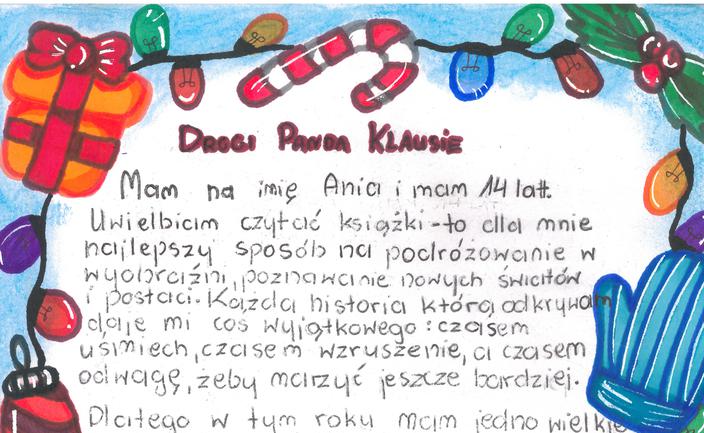 Drogi Panda Klausie
Mam na imię Ania i mam 14 lat.
Uwielbiam czytać książki - to dla mnie
najlepszy sposób na podróżowanie w
wyobraźni, poznawanie nowych światów
i postaci. Każda historia którą odkrywam
daje mi coś wyjątkowego: czasem
uśmiech, czasem wzruszenie, a czasem
odwagę, żeby marzyć jeszcze bardziej.
Dlatego w tym roku mam jedno wielkie